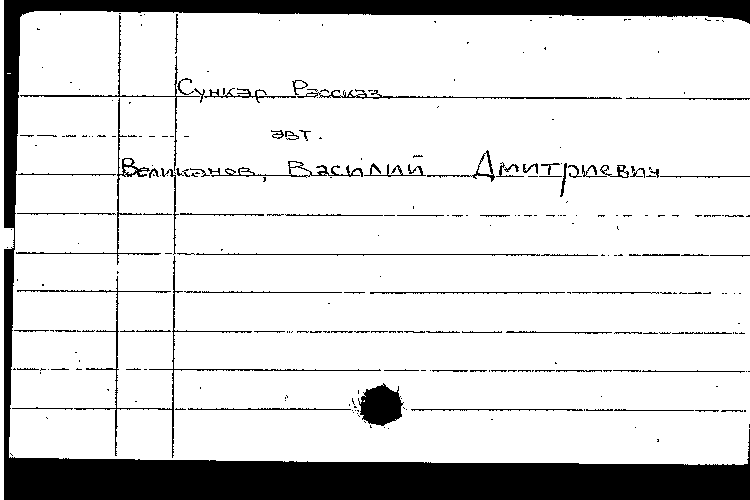 Сункар Рассказ
авт.
Великанов, Василий Дмитриевич